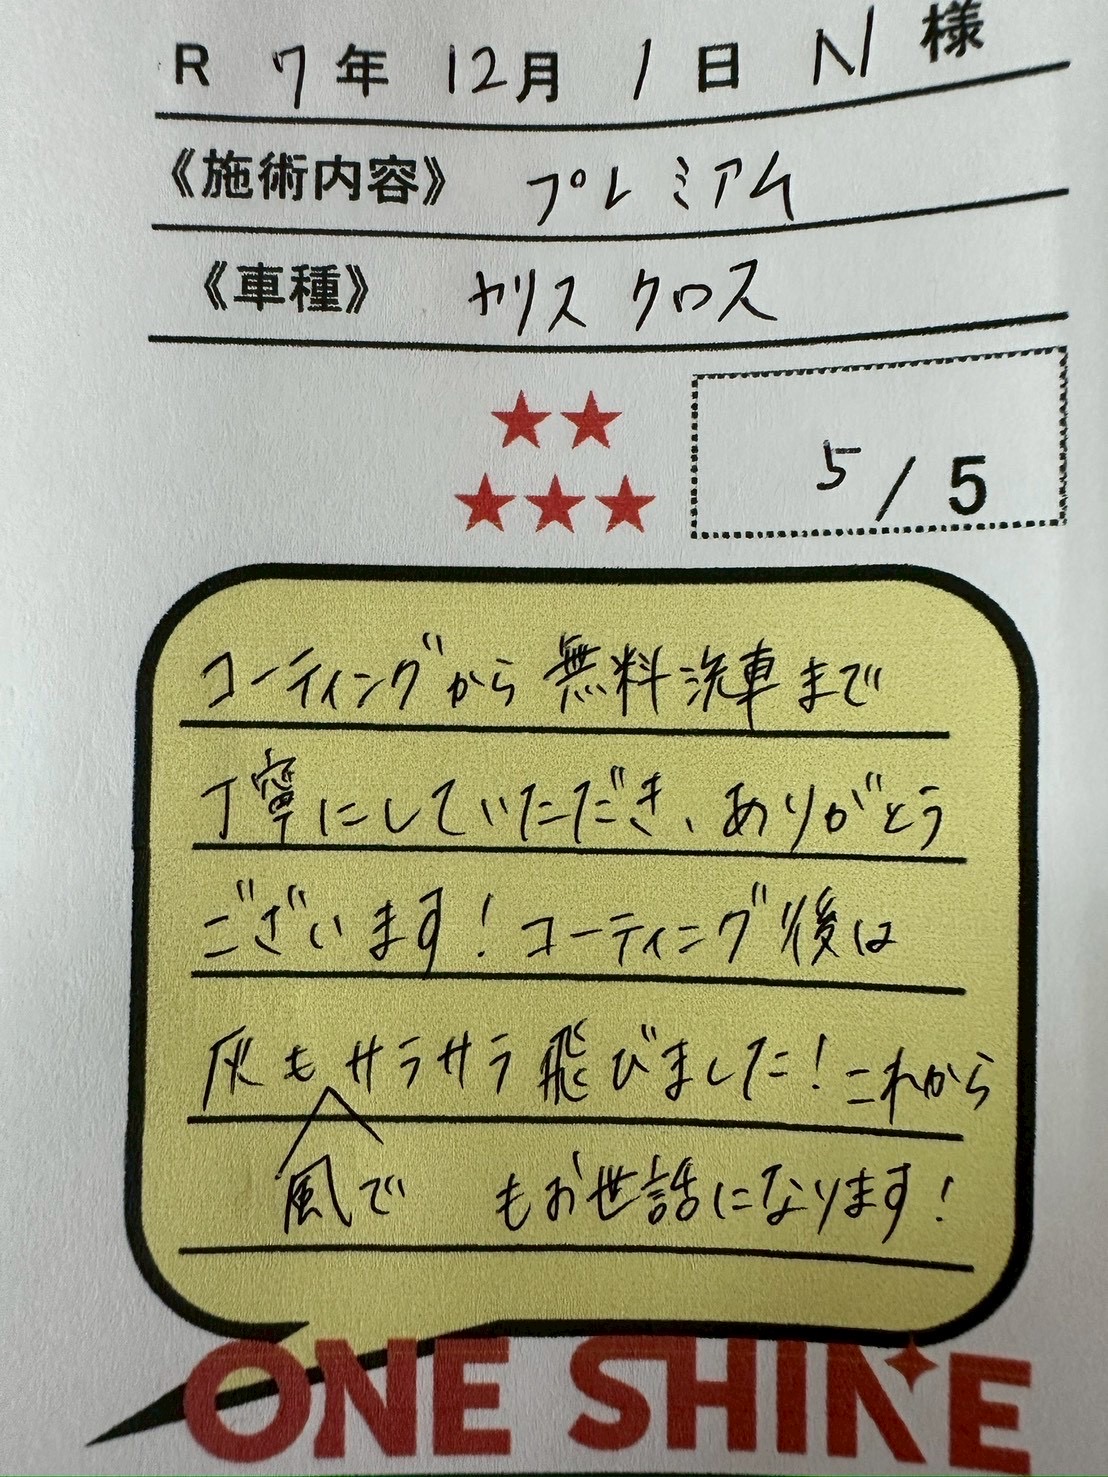 R 7年 12月 1日 N 様
《施術内容》 プレミアム
《車種》 ヤリス クロス
5 / 5
コーティングから無料洗車まで
丁寧にしていただき、ありがとう
ございます！コーティング後は
灰もサラサラ飛びました！これから
風で もお世話になります！
ONE SHINE